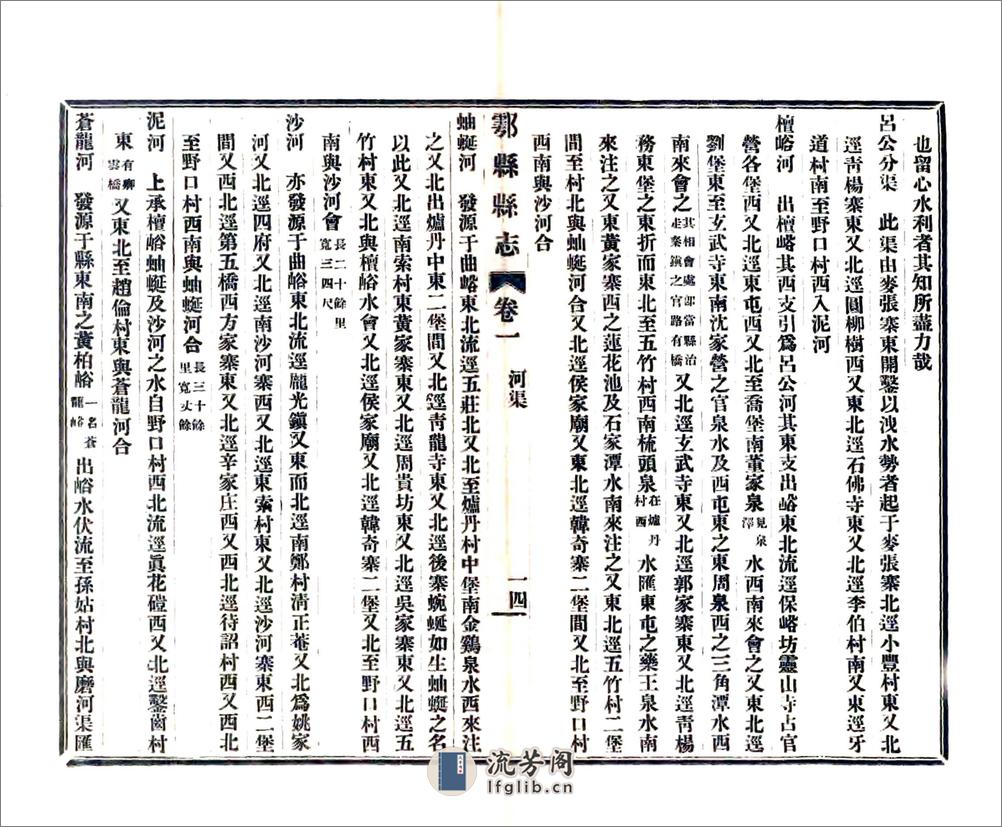 也留心水利者其知所盡力哉
呂公分渠　此渠由麥張寨東開鑿以洩水勢者起于麥張寨北逕小豐村東又北
逕靑楊寨東又北逕圓柳樹西又東北逕石佛寺東又北逕李伯村南又東逕牙
道村南至野口村西入泥河
檀峪河　出檀峪其西支引爲呂公河其東支出峪東北流逕保峪坊靈山寺占官
營各堡西又北逕東屯西又北至喬堡南董家泉見泉澤水西南來會之又東北逕
劉堡東至玄武寺東南沈家營之官泉水及西屯東之東周泉西之三角潭水西
南來會之其相會處部當縣治走秦鎭之官路有橋又北逕玄武寺東又北逕郭家寨東又北逕靑楊
務東堡之東折而東北至五竹村西南梳頭泉在爐丹村西水匯東屯之藥王泉水南
來注之又東黃家寨西之蓮花池及石家潭水南來注之又東北逕五竹村二堡
間至村北與蚰蜒河合又北逕侯家廟又東北逕韓奇寨二堡間又北至野口村
西南與沙河合
鄠縣縣志　卷一　河渠　一四
蚰蜒河　發源于曲峪東北流逕五莊北又北至爐丹村中堡南金鷄泉水西來注
之又北出爐丹中東二堡間又北逕靑龍寺東又北逕後寨蜿蜒如生蚰蜒之名
以此又北逕南索村東黃家寨東又北逕周貴坊東又北逕吳家寨東又北逕五
竹村東又北與檀峪水會又北逕侯家廟又北逕韓奇寨二堡又北至野口村西
南與沙河會長二十餘里寬三四尺
沙河　亦發源于曲峪東北流逕龐光鎭又東而北逕南鄭村淸正菴又北爲姚家
河又北逕四府又北逕南沙河寨西又北逕東索村東又北逕沙河寨東西二堡
間又西北逕第五橋西方家寨東又北逕辛家庄西又西北逕待詔村西又西北
至野口村西南與蚰蜒河合長三十餘里寬丈餘
泥河　上承檀峪蚰蜒及沙河之水自野口村西北流逕眞花磑西又北逕鑿齒村
東有鄉雲橋又東北至趙倫村東與蒼龍河合
蒼龍河　發源于縣東南之黃柏峪一名蒼龍峪出峪水伏流至孫姑村北與磨河渠匯
流芳阁
lfglib.cn